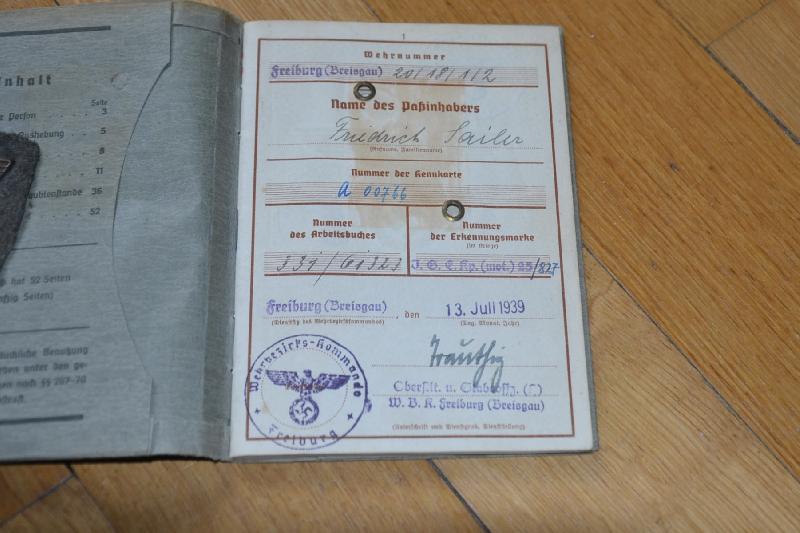 Inhalt
Seite
Person . . . 3
Aushebung . 5
8
11
laubtenstande 36
. . . 52
hat 52 Seiten
Seiten)
Benutzung
den unter den ge-
nach §§ 267-70
1
Wehrnummer
Freiburg (Breisgau) 20/18/1/2
Name des Paßinhabers
Friedrich Sailer
(Rufname, Familienname)
Nummer der Kennkarte
A 00766
Nummer
des Arbeitsbuches
331/
Nummer
der Erkennungsmarke
(im Kriege)
J. G. E. Kp. (mot.) 25/827
Freiburg (Breisgau), den 13. Juli 1939
(Dienstsitz des Wehrbezirkskommandos) (Tag, Monat, Jahr)
Trautzig
Oberstlt. u.
W. B. K. Freiburg (Breisgau)
(Unterschrift und Dienstgrad, Dienststellung)
Wehrbezirks-Kommando
Freiburg